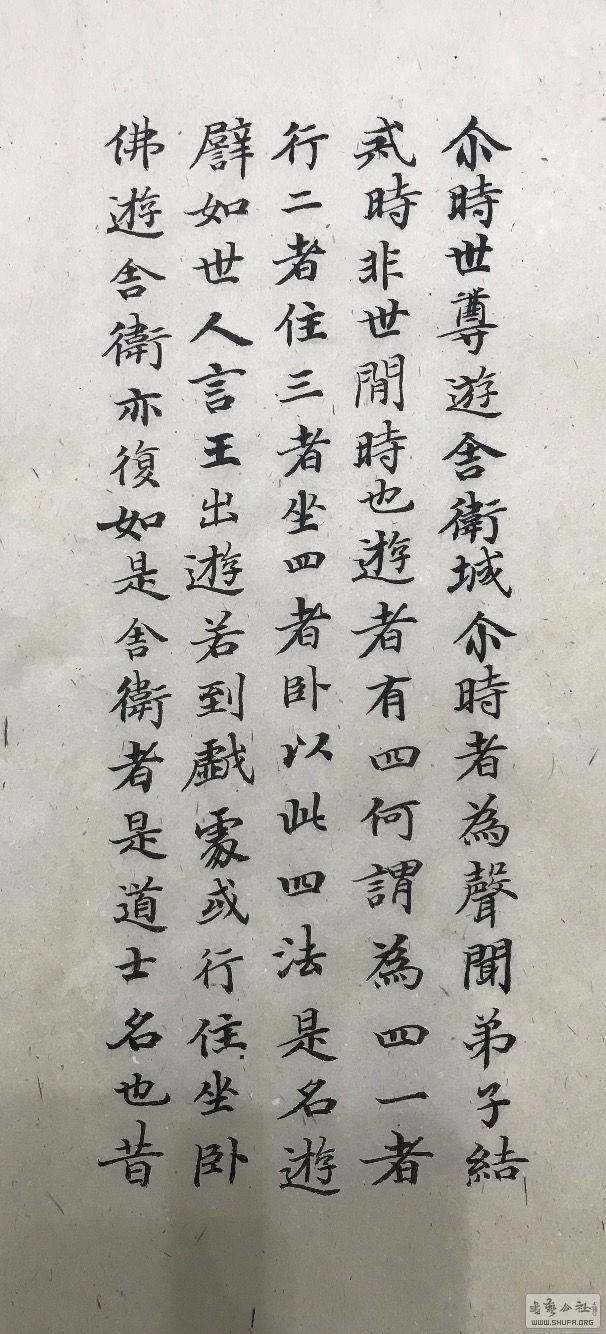 尒時世尊遊舍衛城尒時者為聲聞弟子結
戒時非世間時也遊者有四何謂為四一者
行二者住三者坐四者卧以此四法是名遊
譬如世人言王出遊若到戲處或行住坐卧
佛遊舍衛亦復如是舍衛者是道士名也昔
WWW.SHUFA.ORG